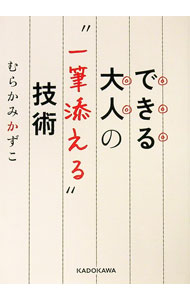 できる
大人の
“一筆添える”
技術
むらかみかずこ
KADOKAWA